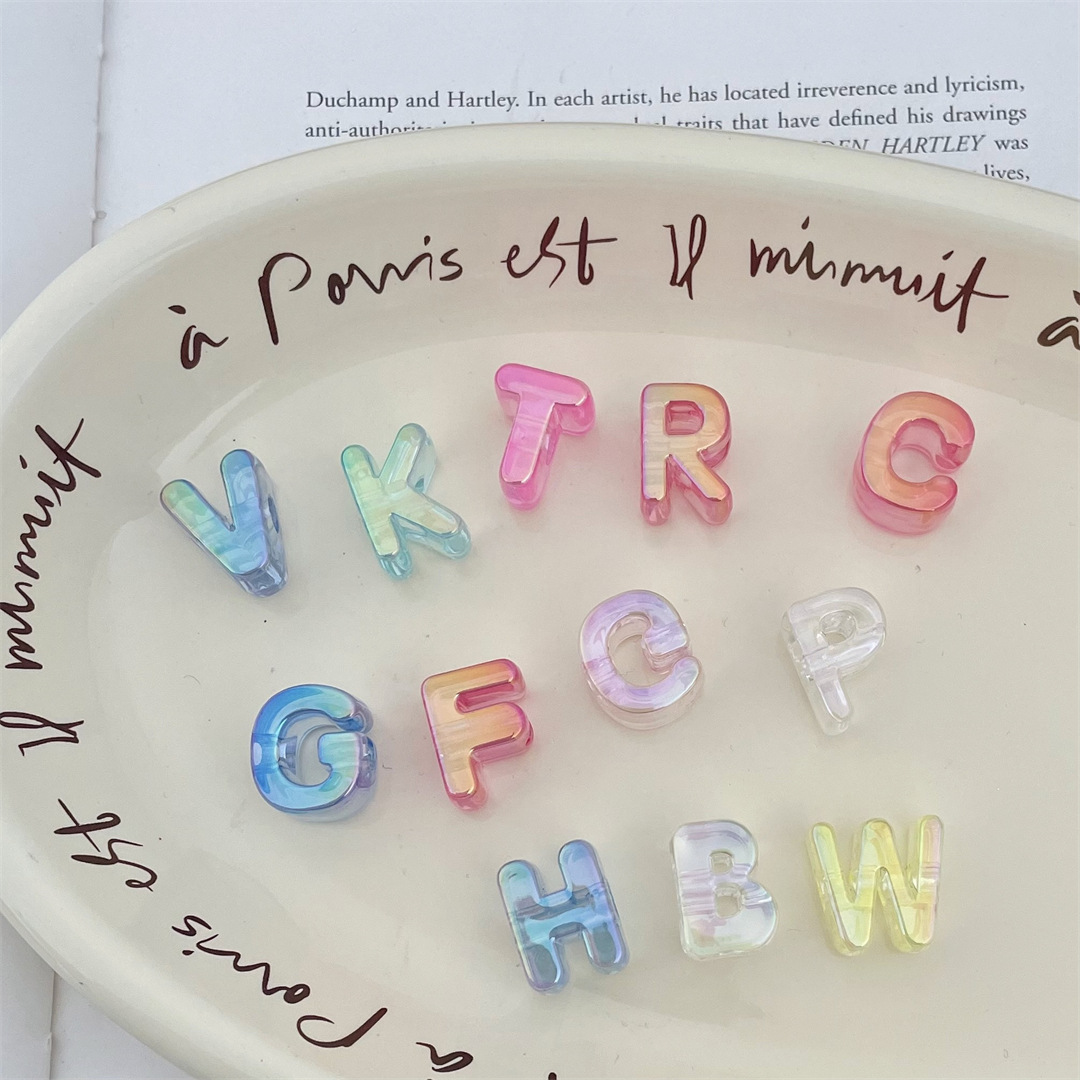 Duchamp and Hartley. In each artist, he has located irreverence and lyricism,
traits that have defined his drawings
HARTLEY was
lives,
à Paris est Il minuit à
minuit
Il
est
Paris
à
V K T R C
G F C P
H B W